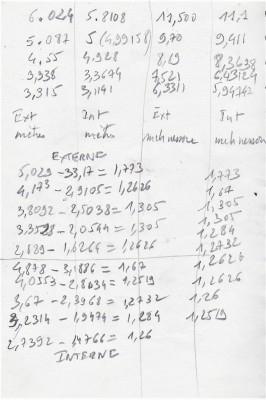 6.024 5.8108 11,500 11,1
5.087 5(4,99158) 9,70 9,411
4.55 4,928 8,19 8,3638
3,938 3,3674 7,521 6,43124
3,315 3,1141 6,3311 5,94742
Ext Int Ext Int
mètres mètres
EXTERNE
5,029-33,17=1,773 1,773
4,173-2,9105=1,2626 1,67
3,8092-2,5038=1,305 1,305
3,3528-2,0544=1,305 1,305
2,889-1,6264=1,2626 1,284
4,878-3,1886=1,67 1,2732
4,0553-2,8034=1,2519 1,2626
3,67-2,3968=1,2732 1,2626
3,2314-1,9474=1,284 1,26
2,7392-1,4766=1,26 1,2519
INTERNE